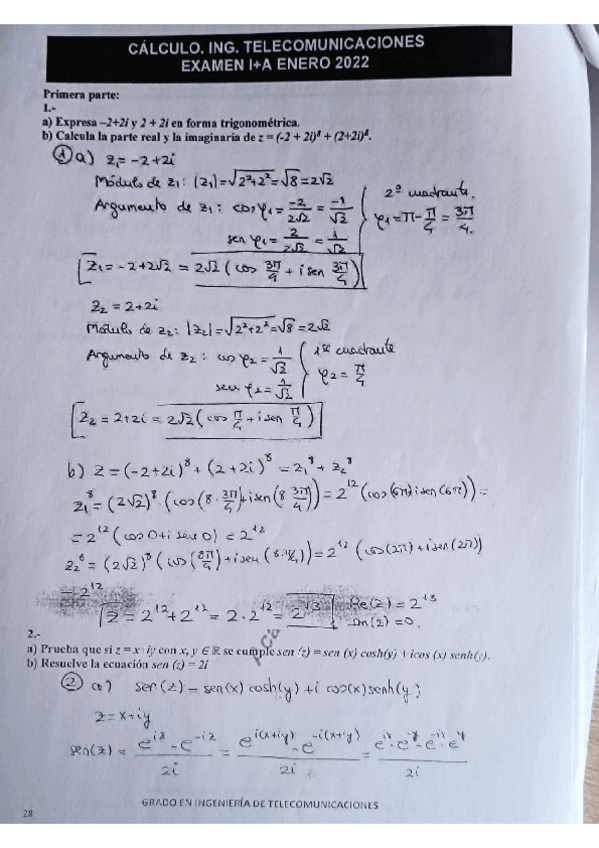 CÁLCULO. ING. TELECOMUNICACIONES
EXAMEN I+A ENERO 2022
Primera parte:
1.-
a) Expresa –2+2i y 2 + 2i en forma trigonométrica.
b) Calcula la parte real y la imaginaria de z = (-2 + 2i)⁸ + (2+2i)⁸.
① a) z₁ = -2+2i
Módulo de z₁: |z₁| = √(2²+2²) = √8 = 2√2
Argumento de z₁: cos φ₁ = -2/(2√2) = -1/√2
sen φ₁ = 2/(2√2) = 1/√2
2º cuadrante.
φ₁ = π - π/4 = 3π/4.
z₁ = -2+2√2 = 2√2 (cos 3π/4 + i sen 3π/4)
z₂ = 2+2i
Módulo de z₂: |z₂| = √(2²+2²) = √8 = 2√2
Argumento de z₂: cos φ₂ = 1/√2
sen φ₂ = 1/√2
1er cuadrante
φ₂ = π/4
z₂ = 2+2i = 2√2 (cos π/4 + i sen π/4)
b) z = (-2+2i)⁸ + (2+2i)⁸ = z₁⁸ + z₂⁸
z₁⁸ = (2√2)⁸ · (cos(8 · 3π/4) + i sen(8 3π/4)) = 2¹² (cos(6π) i sen(6π)) =
= 2¹² (cos 0 + i sen 0) = 2¹²
z₂⁸ = (2√2)⁸ (cos(8π/4) + i sen(8·π/4)) = 2¹² (cos(2π) + i sen(2π))
= 2¹²
z = 2¹² + 2¹² = 2 · 2¹² = 2¹³
Re(z) = 2¹³
Im(z) = 0.
2.-
a) Prueba que si z = x+iy con x, y ∈ ℝ se cumple sen (z) = sen (x) cosh(y) + icos (x) senh(y).
b) Resuelve la ecuación sen (z) = 2i
② a) sen(z) = sen(x) cosh(y) + i cos(x) senh(y)
z = x+iy
sen(z) = (e^{iz} - e^{-iz})/2i = (e^{i(x+iy)} - e^{-i(x+iy)})/2i = (e^{ix}·e^{-y} - e^{-ix}·e^{y})/2i
GRADO EN INGENIERÍA DE TELECOMUNICACIONES
28